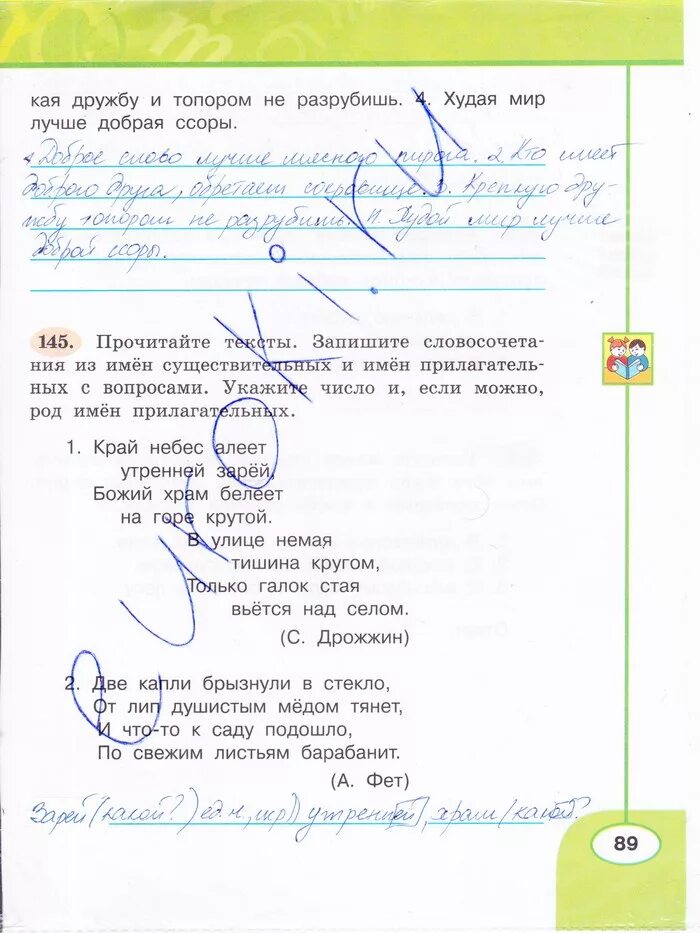 кая дружбу и топором не разрубишь. 4. Худая мир
лучше добрая ссоры.
1. Доброе слово лучше мясного пирога. 2 Кто имеет
доброго друга, обретает сокровище. 3. Крепкую дру-
жбу топором не разрубишь. 4. Худой мир лучше
доброй ссоры.
145. Прочитайте тексты. Запишите словосочета-
ния из имён существительных и имён прилагатель-
ных с вопросами. Укажите число и, если можно,
род имён прилагательных.
1. Край небес алеет
утренней зарёй,
Божий храм белеет
на горе крутой.
В улице немая
тишина кругом,
Только галок стая
вьётся над селом.
(С. Дрожжин)
2. Две капли брызнули в стекло,
От лип душистым мёдом тянет,
И что-то к саду подошло,
По свежим листьям барабанит.
(А. Фет)
Зарей (какой?) ед.ч, утренней, храм (какой?
89